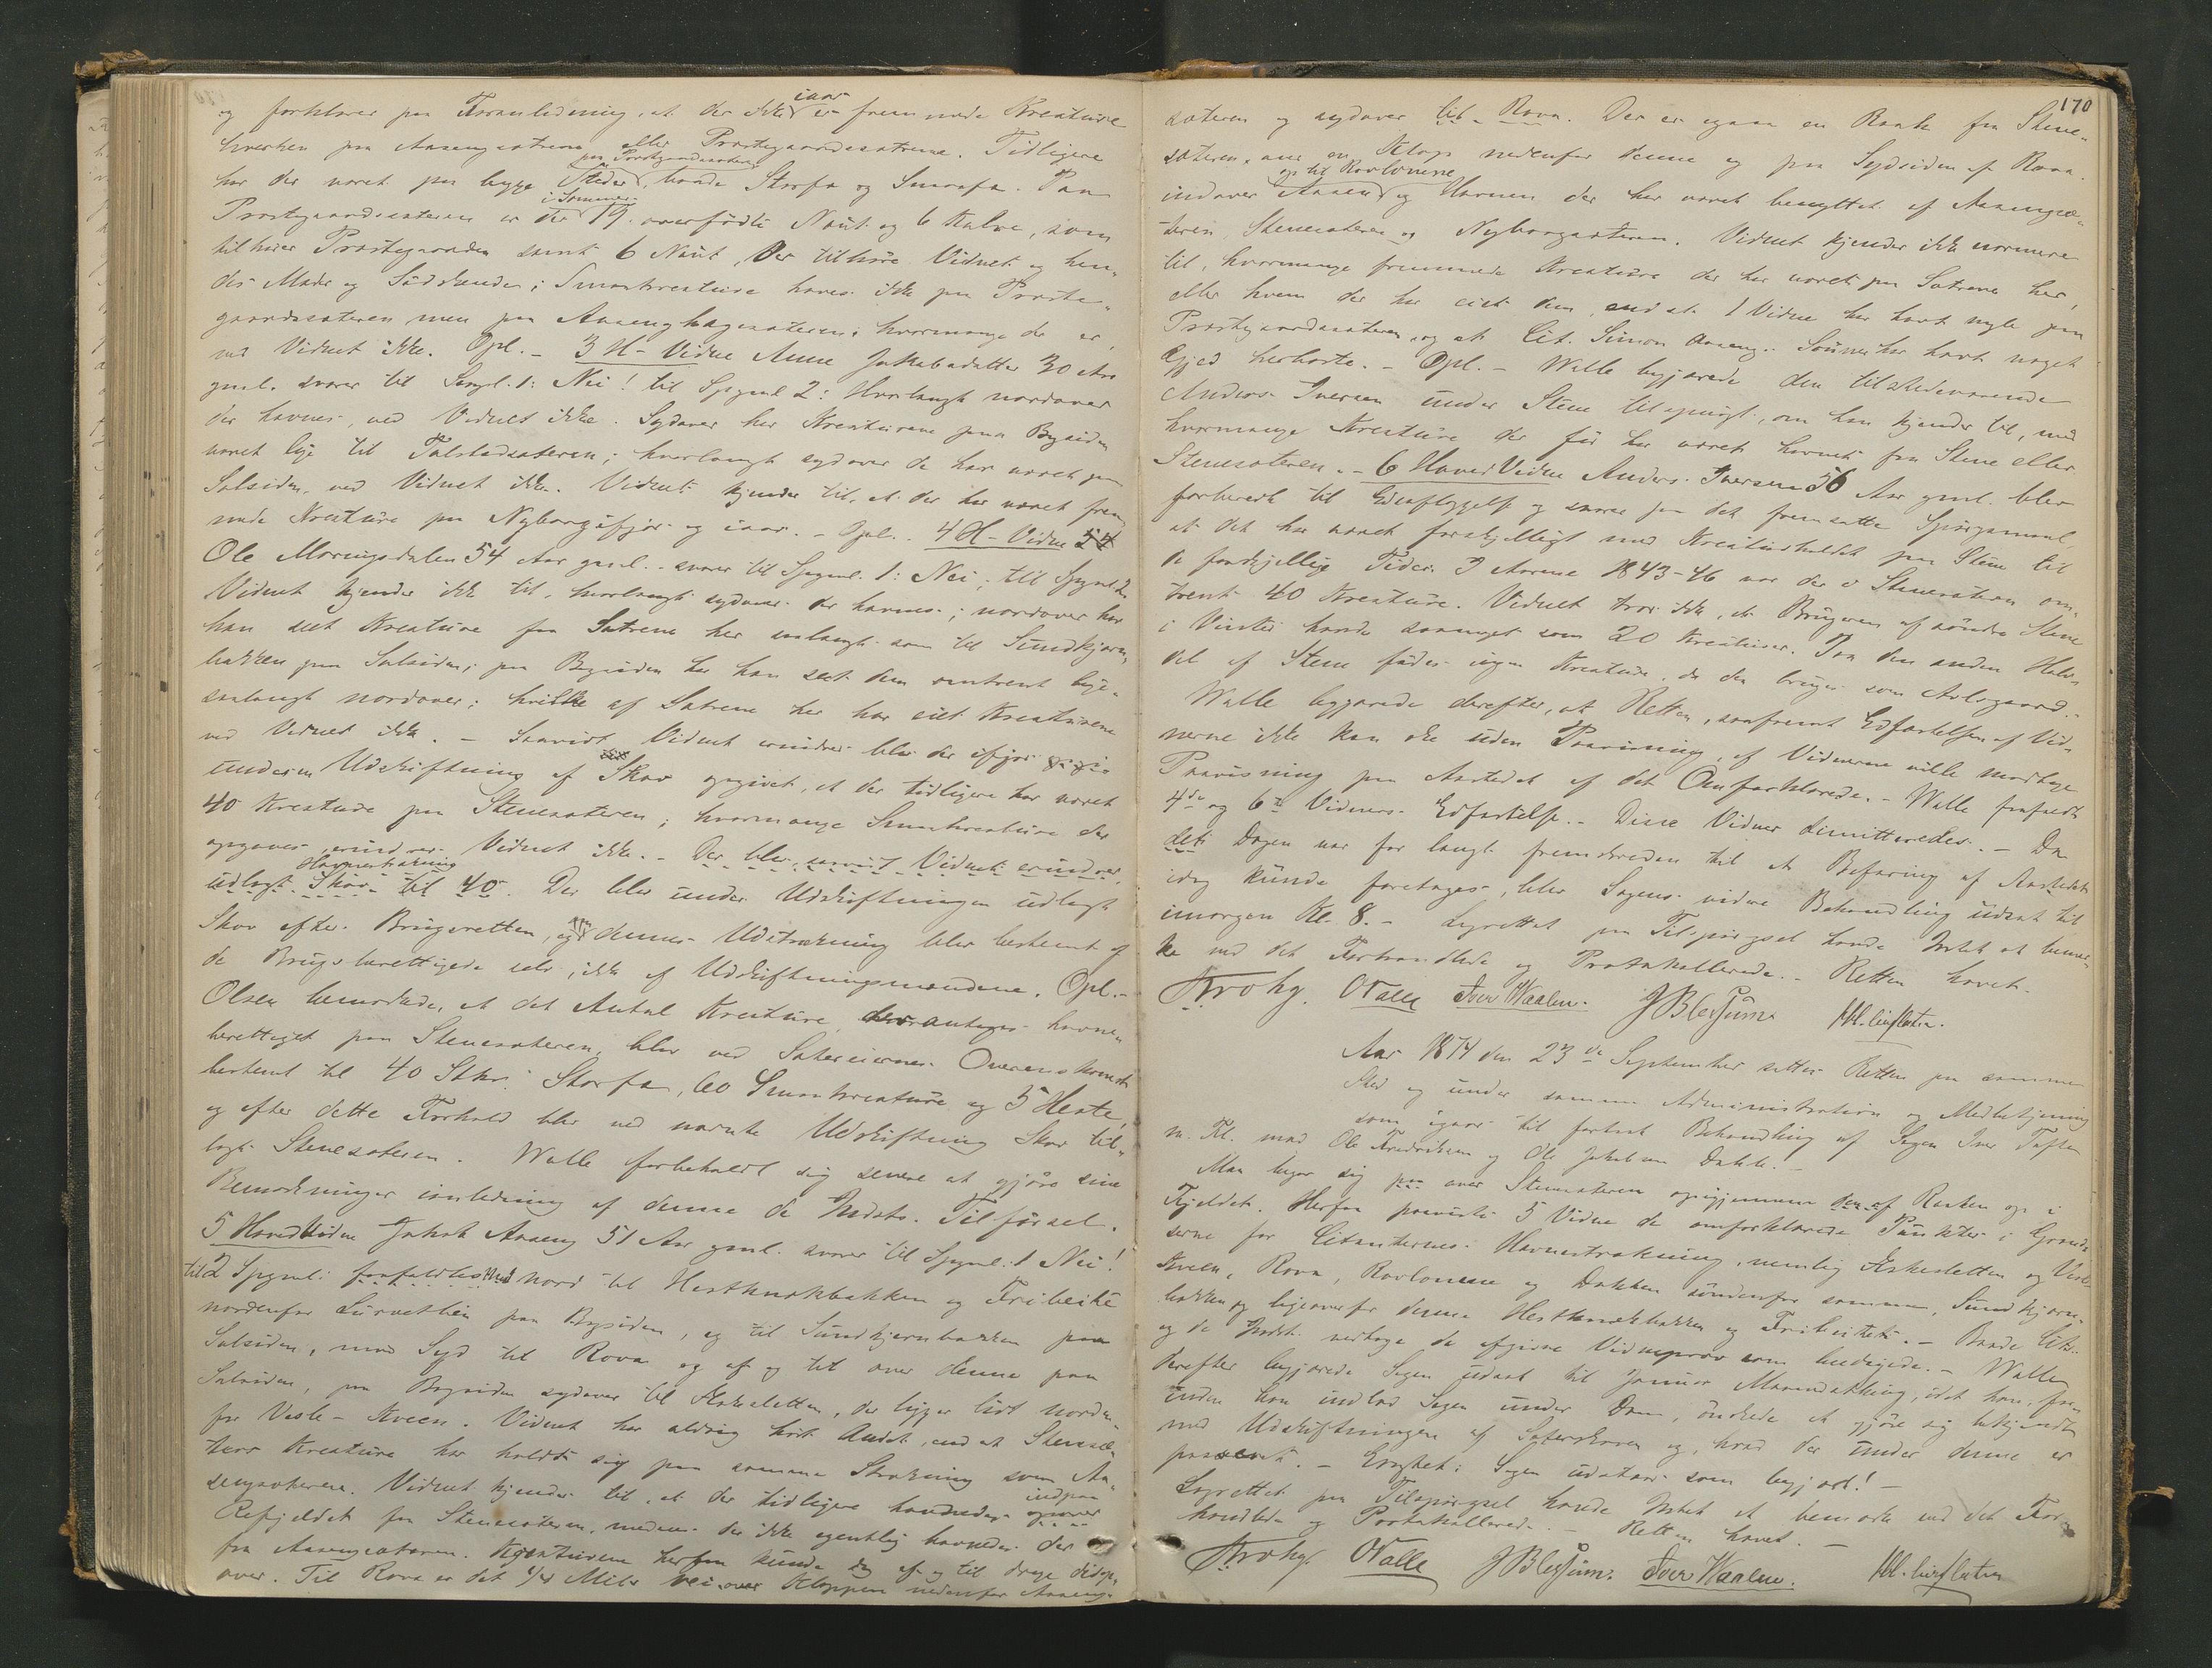 og forklarer paa Foranledning, at der ikke iaar er fremmede Kreature
hverken paa Aasengsætrene eller Præstegaardssætrene. Tidligere
har der været paa begge Steder, baade Storfæ og Smaafæ. Paa
paa Præstgaardssæteren
Præstegaardssæteren er der i Sommer 19 overfødte Naut og 6 Kalve, som
tilhører Præstegaarden samt 6 Naut, der tilhøre Vidnet og hen-
des Moder og Sødskende; Smaakreature haves ikke paa Præste-
gaardssæteren men paa Aasenghagesæteren; hvormange der er,
ved Vidnet ikke. Opl. - 3 H-Vidne Anne Jakobsdatter 30 Aar
gml. svarer til Spgml. 1: Nei! til Spgml 2: Hvorlangt nordover
der havnes, ved Vidnet ikke. Sydover har Kreaturene paa Bygsiden
været lige til Tolstadsæteren; hvorlangt sydover de har været paa
Solsiden, ved Vidnet ikke. Vidnet kjender til, at der har været frem-
mede Kreature paa Nyborg ifjor og iaar. - Opl. 4 H-Vidne
Ole Moringsdalen 54 Aar gml. svarer til Spgml. 1: Nei; til Spgml 2:
Vidnet kjender ikke til, hvorlangt sydover der havnes; nordover har
han seet Kreature fra Sætrene her saalangt som til Sundkjærn-
bakken paa Solsiden; paa Bygsiden har han seet dem omtrent lige-
saalangt nordover; hvilke af Sætrene her har eiet Kreaturene
ved Vidnet ikke. - Saavidt Vidnet erindrer blev der ifjor
under en Udskiftning af Skov opgivet, at der tidligere har været
40 Kreature paa Stenesæteren; hvormange Smaakreature der
opgaves erindrer Vidnet ikke. - Der blev, saavidt Vidnet erindrer,
Havnestrækning
udlagt Skov til 40. Der blev under Udskiftningen udlagt
Skov efter Brugsretten, og dennes Udstrækning blev bestemt af
de Brugsberettigede selv, ikke af Udskiftningsmændene. Opl. -
Olsen bemærkede, at det Antal Kreature, der antages havne-
berettiget paa Stenesæteren, blev ved Sætereiernes Overenskomst
bestemt til 40 Stkr. Storfæ, 60 Smaakreature og 5 Heste,
og efter dette Forhold blev ved nævnte Udskiftning Skov til-
lagt Stenesæteren. Walle forbeholdt sig senere at gjøre sine
Bemærkninger i anledning af denne de Indst. Tilførsel.
5 Hovedvidne Jakob Aaseng 51 Aar gml. svarer til Spgml. 1 Nei!
til 2 Spgml: mod nord til Hestknækbakken og Fribeite
nordenfor Survetlien paa Bygsiden, og til Sundkjernbakken paa
Solsiden, mod Syd til Rova og af og til over denne paa
Solsiden, paa Bygsiden sydover til Askesletten, der ligger lidt norden-
for Vesle-Kveen. Vidnet har aldrig hørt Andet, end at Stenesæ-
terens Kreature har holdt sig paa samme Strækning som Aa-
sengsæterens. Vidnet kjender til, at der tidligere havnedes indpaa
Refjeldet fra Stenesæteren, medens der ikke egentlig havnedes der
fra Aasengsæteren. Kreaturene herfra kunde dog af og til drage didop-
over. Til Rova er det 1/4 Mils vei over Kloppen nedenfor Aaseng-
170
sæteren og sydover til Rova. Der er ogsaa en Raak fra Stene-
sæteren over en Klop nedenfor denne og paa Sydsiden af Rova
op til Rovlonene
indover Aasen og Havnen der har været benyttet af Aasengsæ-
teren, Stenesæteren og Nyborgsæteren. Vidnet kjender ikke nærmere
til, hvormange fremmede Kreature der har været paa Sætrene her,
eller hvem der har eiet dem, end at 1 Vidne har havt nogle paa
Præstegaardssæteren, og at Cit. Simon Aasengs Sønner har havt noget
Gjed herborte. - Opl. - Walle begjærede den tilstedeværende
Anders Iversen under Stene tilspurgt, om han kjender til, med
hvormange Kreature der før har været havnet fra Stene eller
Stenesæteren. - 6 HovedVidne Anders Iversen 56 Aar gml. blev
forberedt til Edsaflæggelse og svarer paa det fremsatte Spørgsmaal,
at det har været forskjelligt med Kreaturholdet paa Stene til
de forskjellige Tider. I Aarene 1843-46 var der i Stenesæteren om-
trent 40 Kreature. Vidnet tror ikke, at Brugeren af søndre Stene
i Vinter havde saameget som 20 Kreature. Paa den anden Halv-
del af Stene fødes ingen Kreature, da den bruges som Avlsgaard. -
Walle begjærede derefter, at Retten, saafremt Edfæstelsen af Vid-
nerne ikke kan ske uden Paavisning, af Vidnerne ville modtage
Paavisning paa Aastedet af det Omforklarede. - Walle frafaldt
4de og 6te Vidners Edfæstelse. - Disse Vidner dimitteredes. - Da
det Dagen var for langt fremskreden til at Befaring af Aastedet
idag kunde foretages, blev Sagens videre Behandling udsat til
imorgen Kl. 8. - Lagrettet paa Tilspørgsel havde Intet at bemær-
ke ved det Forhandlede og Protokollerede. - Retten hævet.
Krohg. OWalle Iver Waalen. JBlessum.
Aar 1874 den 23de September sattes Retten paa samme
Sted og under samme Administration og Medbetjening
som igaar til fortsat Behandling af Sagen Iver Toften
m. Fl. mod Ole Fredriksen og Ole Jakobsen Dahle. -
Man begav sig paa over Stenesæteren opigjennem af Raaken op i
Fjeldet. Herfra paaviste 5 Vidne de omforklarede Punkter i Grænd-
serne for Citanternes Havnestrækning, nemlig Askesletten og Vesle
Kveen, Rova, Rovlonene og Dokken søndenfor samme, Sundkjærn-
bakken og ligeoverfor denne Hestknækbakken og Fribeitet. - Baade Cit.
og de Indst. vedtoge de afgivne Vidneprov som beedigede. - Walle
derefter begjærede Sagen udsat til Januar Maanedsthing, idet han, for-
inden han indlod Sagen under Dom, ønskede at gjøre sig bekjendt
med Udskiftningen af Sæterskoven og, hvad der under denne er
passeret. - Eragtet: Sagen udstaar som begjært! -
Lagrettet paa Tilspørgsel havde Intet at bemærke ved det For-
handlede og Protokollerede. - Retten hævet. -
Krohg OWalle JBlessum. Iver Waalen.